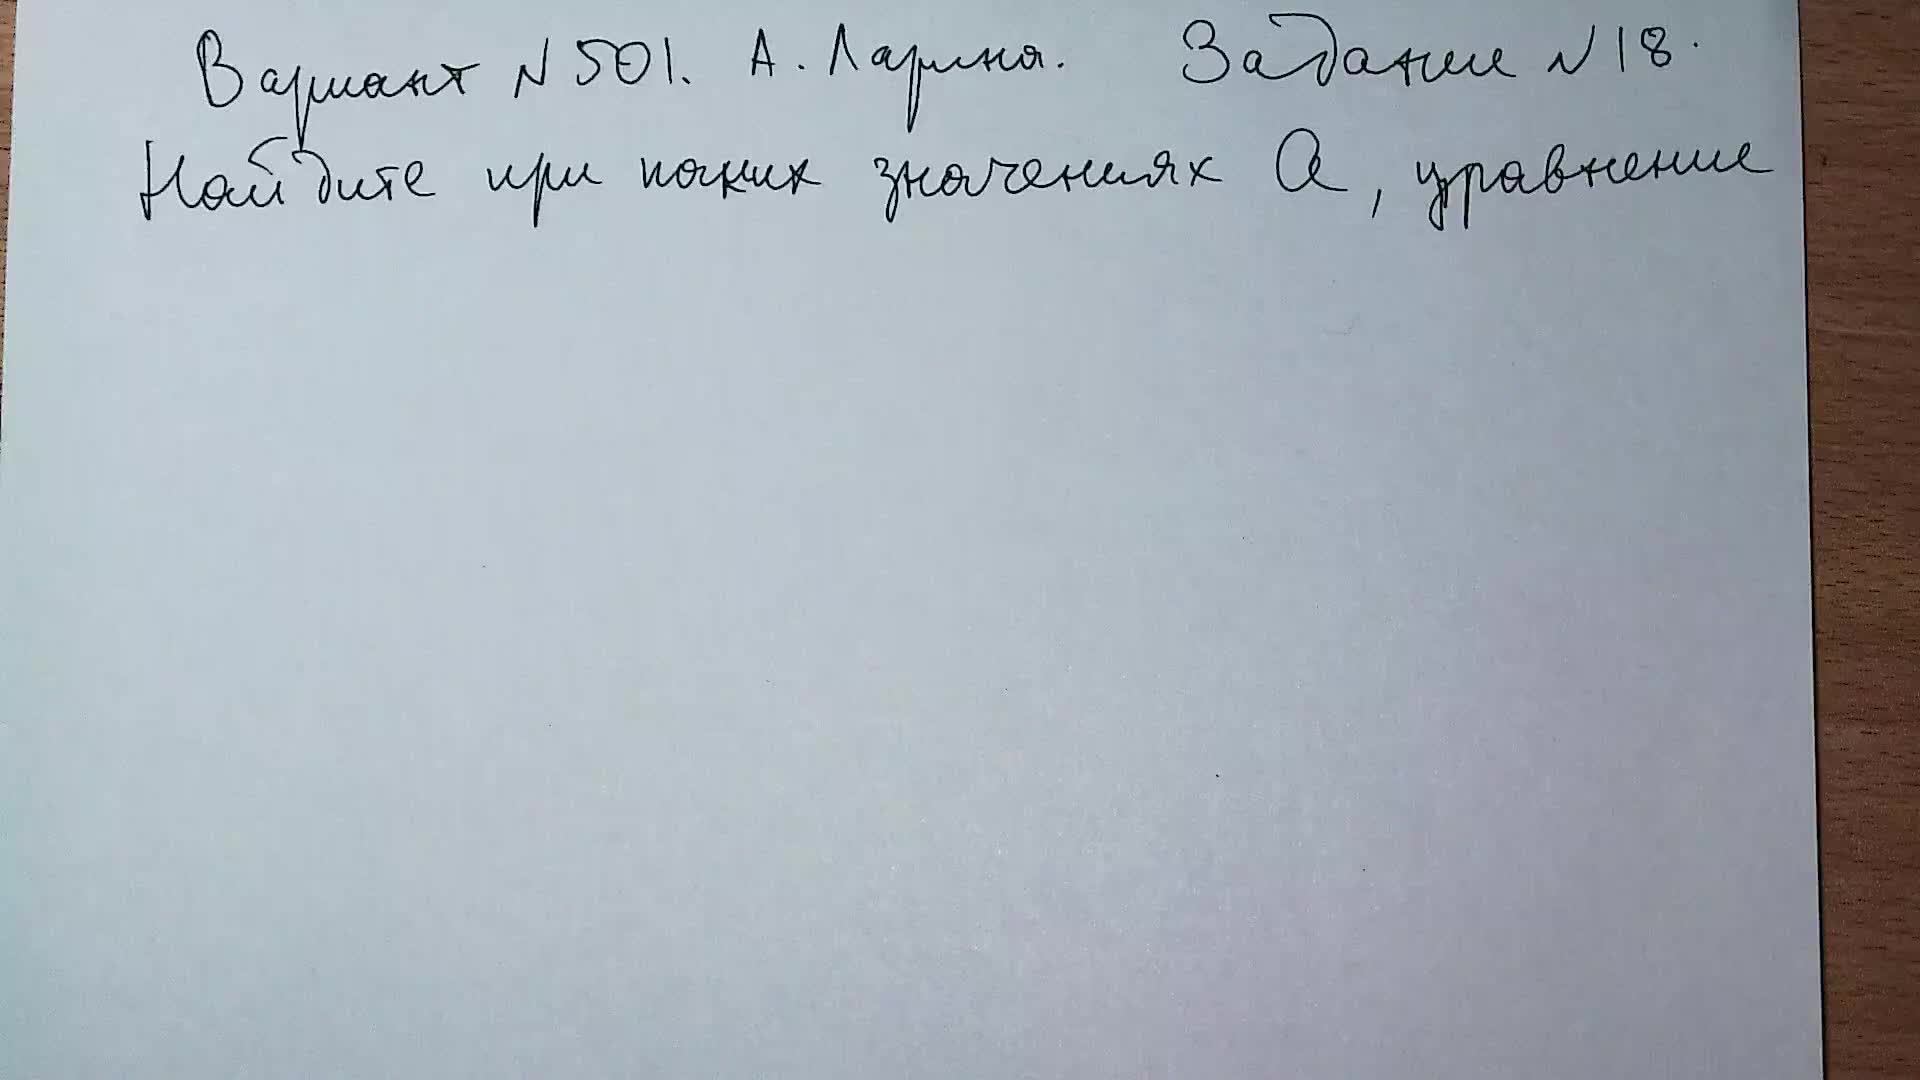 Вариант N 501. А. Ларина. Задание N 18.
Найдите при каких значениях а, уравнение